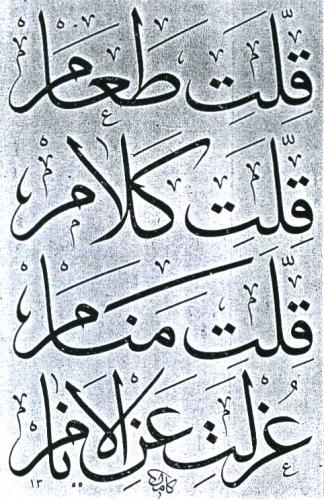 قِلَّتِ طَعَام
قِلَّتِ كَلَام
قِلَّتِ مَنَام
عُزْلَتِ عَنِ الْاَنَام